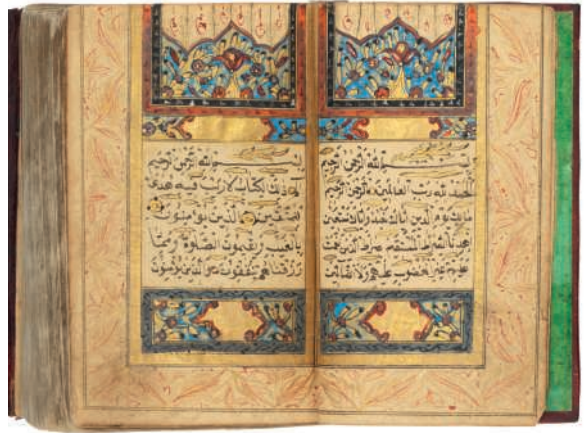 بسم الله الرحمن الرحيم
الحمد لله رب العالمين الرحمن الرحيم
مالك يوم الدين اياك نعبد واياك نستعين
اهدنا الصراط المستقيم صراط الذين انعمت
عليهم غير المغضوب عليهم ولا الضالين
بسم الله الرحمن الرحيم
الم ذلك الكتاب لا ريب فيه هدى
للمتقين الذين يؤمنون
بالغيب ويقيمون الصلوة ومما
رزقناهم ينفقون والذين يؤمنون